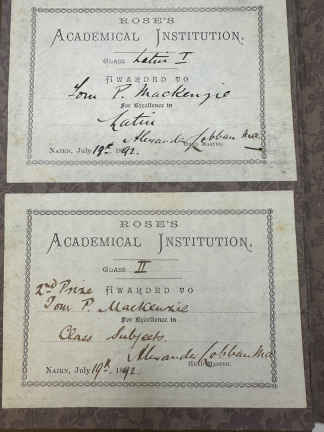 ROSE'S
ACADEMICAL INSTITUTION.
CLASS Latin I
AWARDED TO
Tom P. Mackenzie
For Excellence in
Latin
Alexander Lobban M.A.
HEAD MASTER.
NAIRN, July 19th 1892.
ROSE'S
ACADEMICAL INSTITUTION.
CLASS II
2nd Prize AWARDED TO
Tom P. Mackenzie
For Excellence in
Class Subjects.
Alexander Lobban M.A.
HEAD MASTER.
NAIRN, July 19th 1892